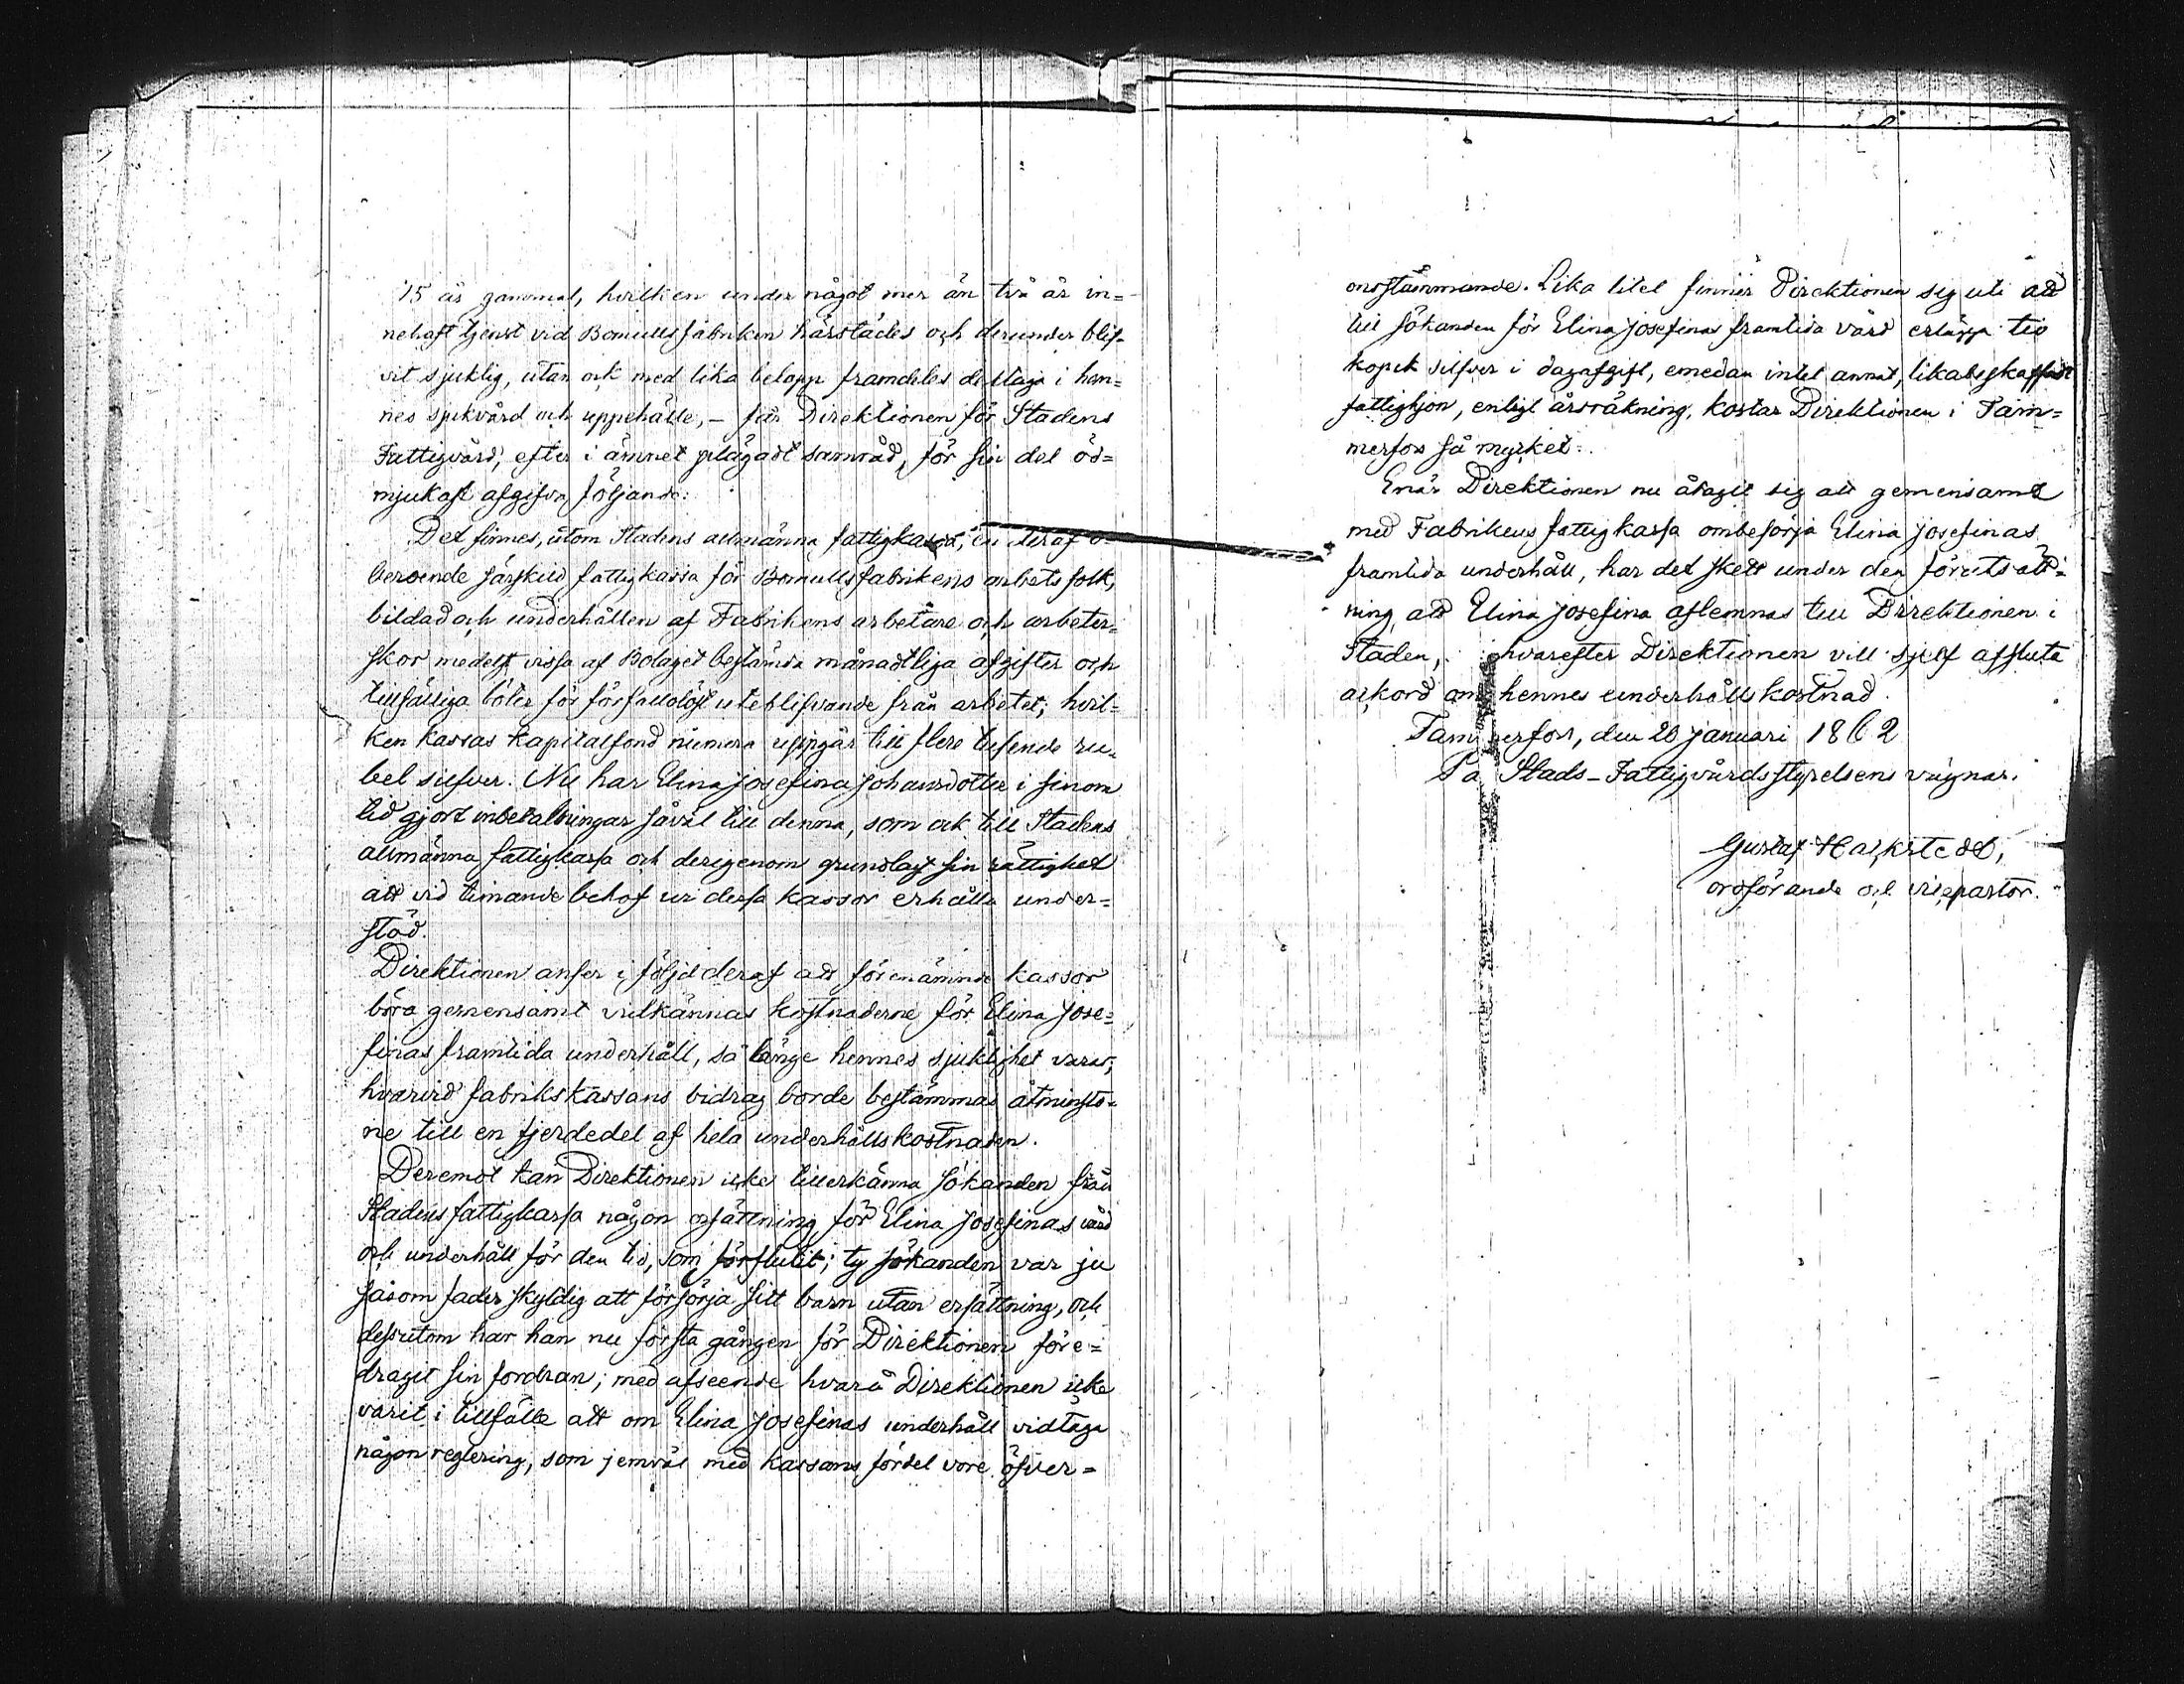 15 år gammal, hvilken under något mer än två år in=
nehaft tjenst vid Bomullsfabriken härstädes och derunder blif=
vit sjuklig, utan ock med lika belopp framdeles deltaga i hen=
nes sjukvård och uppehälle, – får Direktionen för Stadens
Fattigvård, efter i ämnet plägadt samråd, för sin del öd=
mjukast afgifva följande:
Det finnes, utom Stadens allmänna fattigkassa, en deraf o=
beroende särskild fattigkassa för Bomullsfabrikens arbetsfolk,
bildad och underhållen af Fabrikens arbetare och arbeter=
skor medelst vissa af Bolaget bestämda månadtliga afgifter och
tillfälliga böter för förfallolöst uteblifvande från arbetet; hvil=
ken kassas kapitalfond numera uppgår till flere tusende ru=
bel silfver. Nu har Elina Josefina Johansdotter i sinom
tid gjort inbetalningar såväl till denna, som ock till Stadens
allmänna fattigkassa och derigenom grundlagt sin rättighet
att vid timande behof ur dessa kassor erhålla under=
stöd.
Direktionen anser i följd deraf att förenämnde kassor
böra gemensamt vidkännas kostnaderne för Elina Jose=
finas framtida underhåll, så länge hennes sjuklighet varar,
hvarvid fabrikskassans bidrag borde bestämmas åtminsto=
ne till en fjerdedel af hela underhållskostnaden.
Deremot kan Direktionen icke tillerkänna Sökanden från
Stadens fattigkassa någon ersättning för Elina Josefinas vård
och underhåll för den tid, som förflutit; ty sökanden var ju
såsom fader skyldig att försörja sitt barn utan ersättning, och
dessutom har han nu första gången för Direktionen före=
dragit sin fordran; med afseende hvarå Direktionen icke
varit i tillfälle att om Elina Josefinas underhåll vidtaga
någon reglering, som jemväl med kassans fördel vore öfver=
ensstämmande. Lika litet finner Direktionen sig uti att
till sökanden för Elina Josefinas framtida vård erlägga tio
kopek silfver i dagafgift, emedan intet annat, likabeskaffadt
fattighjon, enligt årsräkning, kostar Direktionen i Tam=
merfors så mycket.
Enär Direktionen nu åtagit sig att gemensamt
med Fabrikens fattigkassa ombesörja Elina Josefinas
framtida underhåll, har det skett under den förutsätt=
ning att Elina Josefina aflemnas till Direktionen i
Staden, hvarefter Direktionen vill sjelf afsluta
ackord om hennes underhållskostnad.
Tammerfors, den 20 januari 1862
På Stads-Fattigvårdsstyrelsens vägnar.
Gustaf
ordförande och vicepastor.